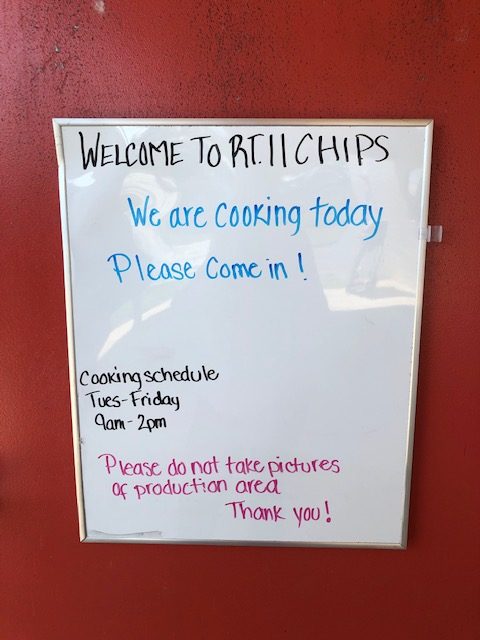 WELCOME TO RT. 11 CHIPS
We are cooking today
Please Come in !
Cooking schedule
Tues-Friday
9am-2pm
Please do not take pictures
of production area
Thank you!